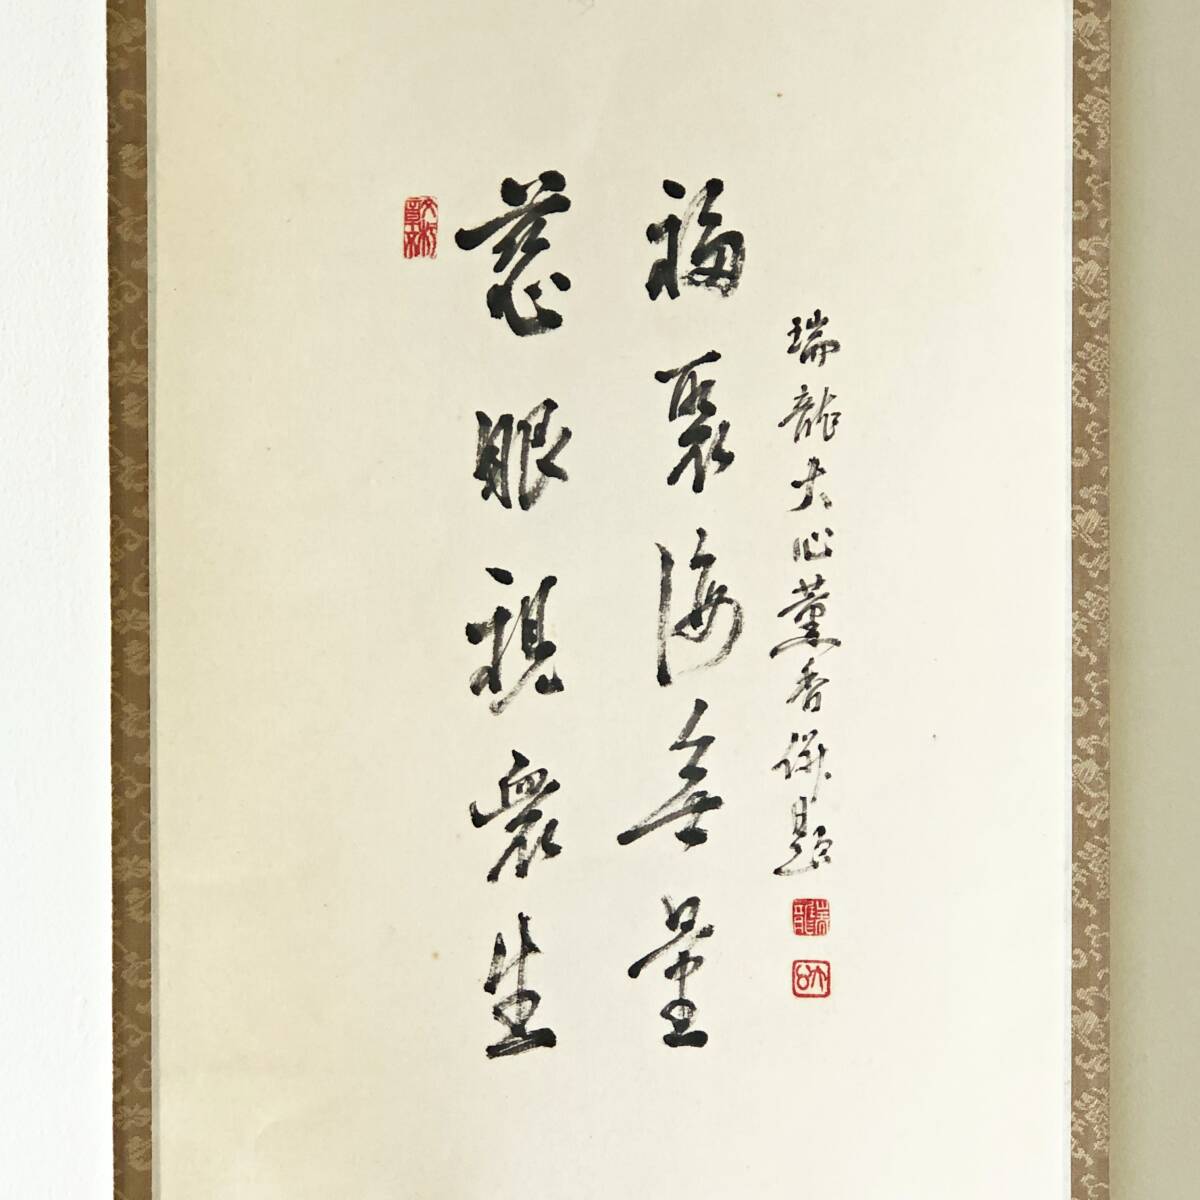 慈眼視衆生
福聚海無量
瑞龍大心薫香併題
瑞龍